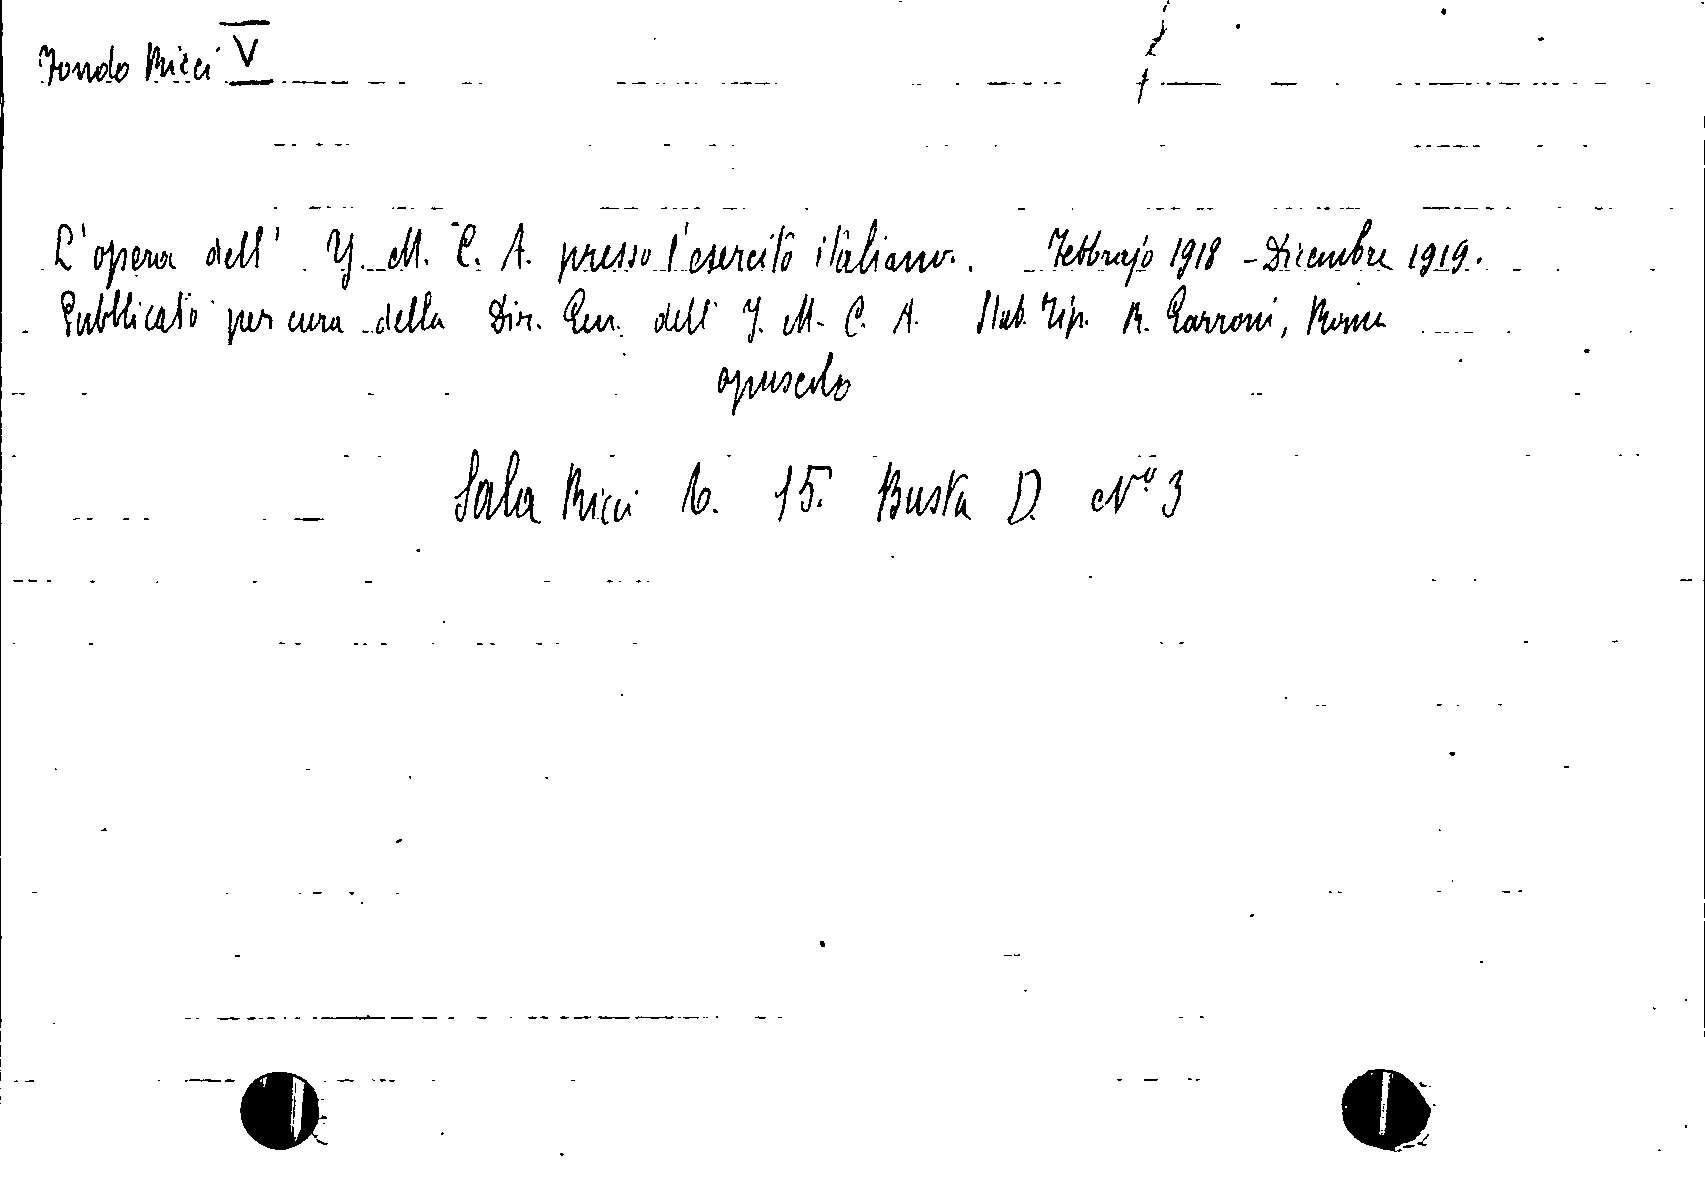 Fondo Ricci V
L'opera dell' Y. M. C. A. presso l'esercito italiano. Febbrajo 1918 - Dicembre 1919.
Pubblicato per cura della Dir. Gen. dell' Y. M. C. A. Stab. Tip. R. Garroni, Roma
opuscolo
Sala Ricci C. 15. Busta D. Nº 3